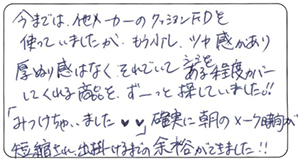 今までは、他メーカーのクッションFDを
使っていましたが、もう少し、ツヤ感があり
厚ぬり感はなく、それでいて シミをある程度カバー
してくれる商品を、ずーっと探していました!!
「みつけちゃいました♥♥」確実に朝のメーク時間が
短縮され、出掛けるまでの余裕ができました!!